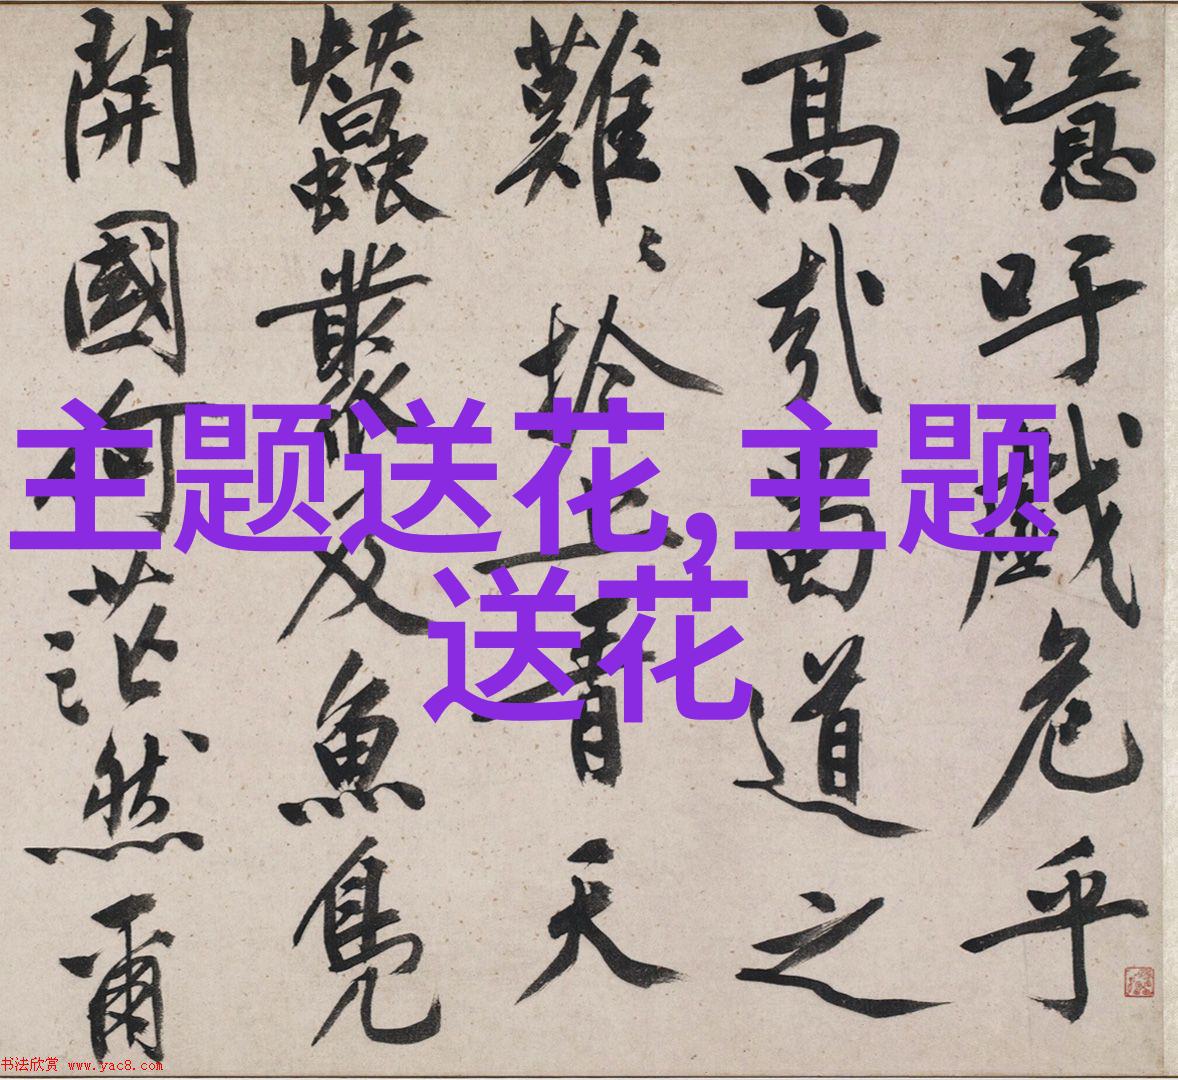 噫吁戲危乎
高哉蜀道之
難〻於上青天
蠶叢及魚鳧
開國何茫然爾
主题送花,主题
送花
书法欣赏 www.yac8.com